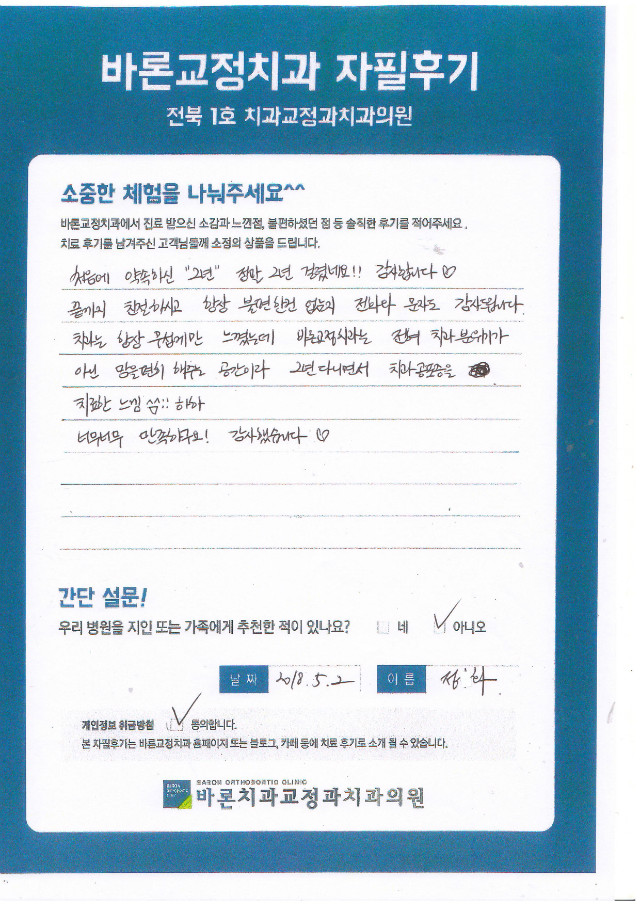 바론교정치과 자필후기
전북 1호 치과교정과치과의원
소중한 체험을 나눠주세요^^
바론교정치과에서 진료 받으신 소감과 느낀점, 불편하셨던 점 등 솔직한 후기를 적어주세요.
치료 후기를 남겨주신 고객님들께 소정의 상품을 드립니다.
처음에 약속하신 "2년" 정말 2년 걸렸네요!! 감사합니다♡
끝까지 친절하시고 항상 불편한건 없는지 전화나 문자도 감사드립니다
치과는 항상 무섭게만 느꼈는데 바론교정치과는 전혀 치과분위기가
아닌 맘을편히 해주는 공간이라 2년 다니면서 치과공포증을
치료한 느낌 하하
너무너무 만족하구요! 감사했습니다♡
간단 설문!
우리 병원을 지인 또는 가족에게 추천한 적이 있나요? 네 아니오
날 짜 2018.5.2 이 름
개인정보 취급방침 동의합니다.
본 자필후기는 바론교정치과 홈페이지 또는 블로그, 카페 등에 치료 후기로 소개 될 수 있습니다.
BARON ORTHODONTIC CLINIC
바론치과교정과치과의원